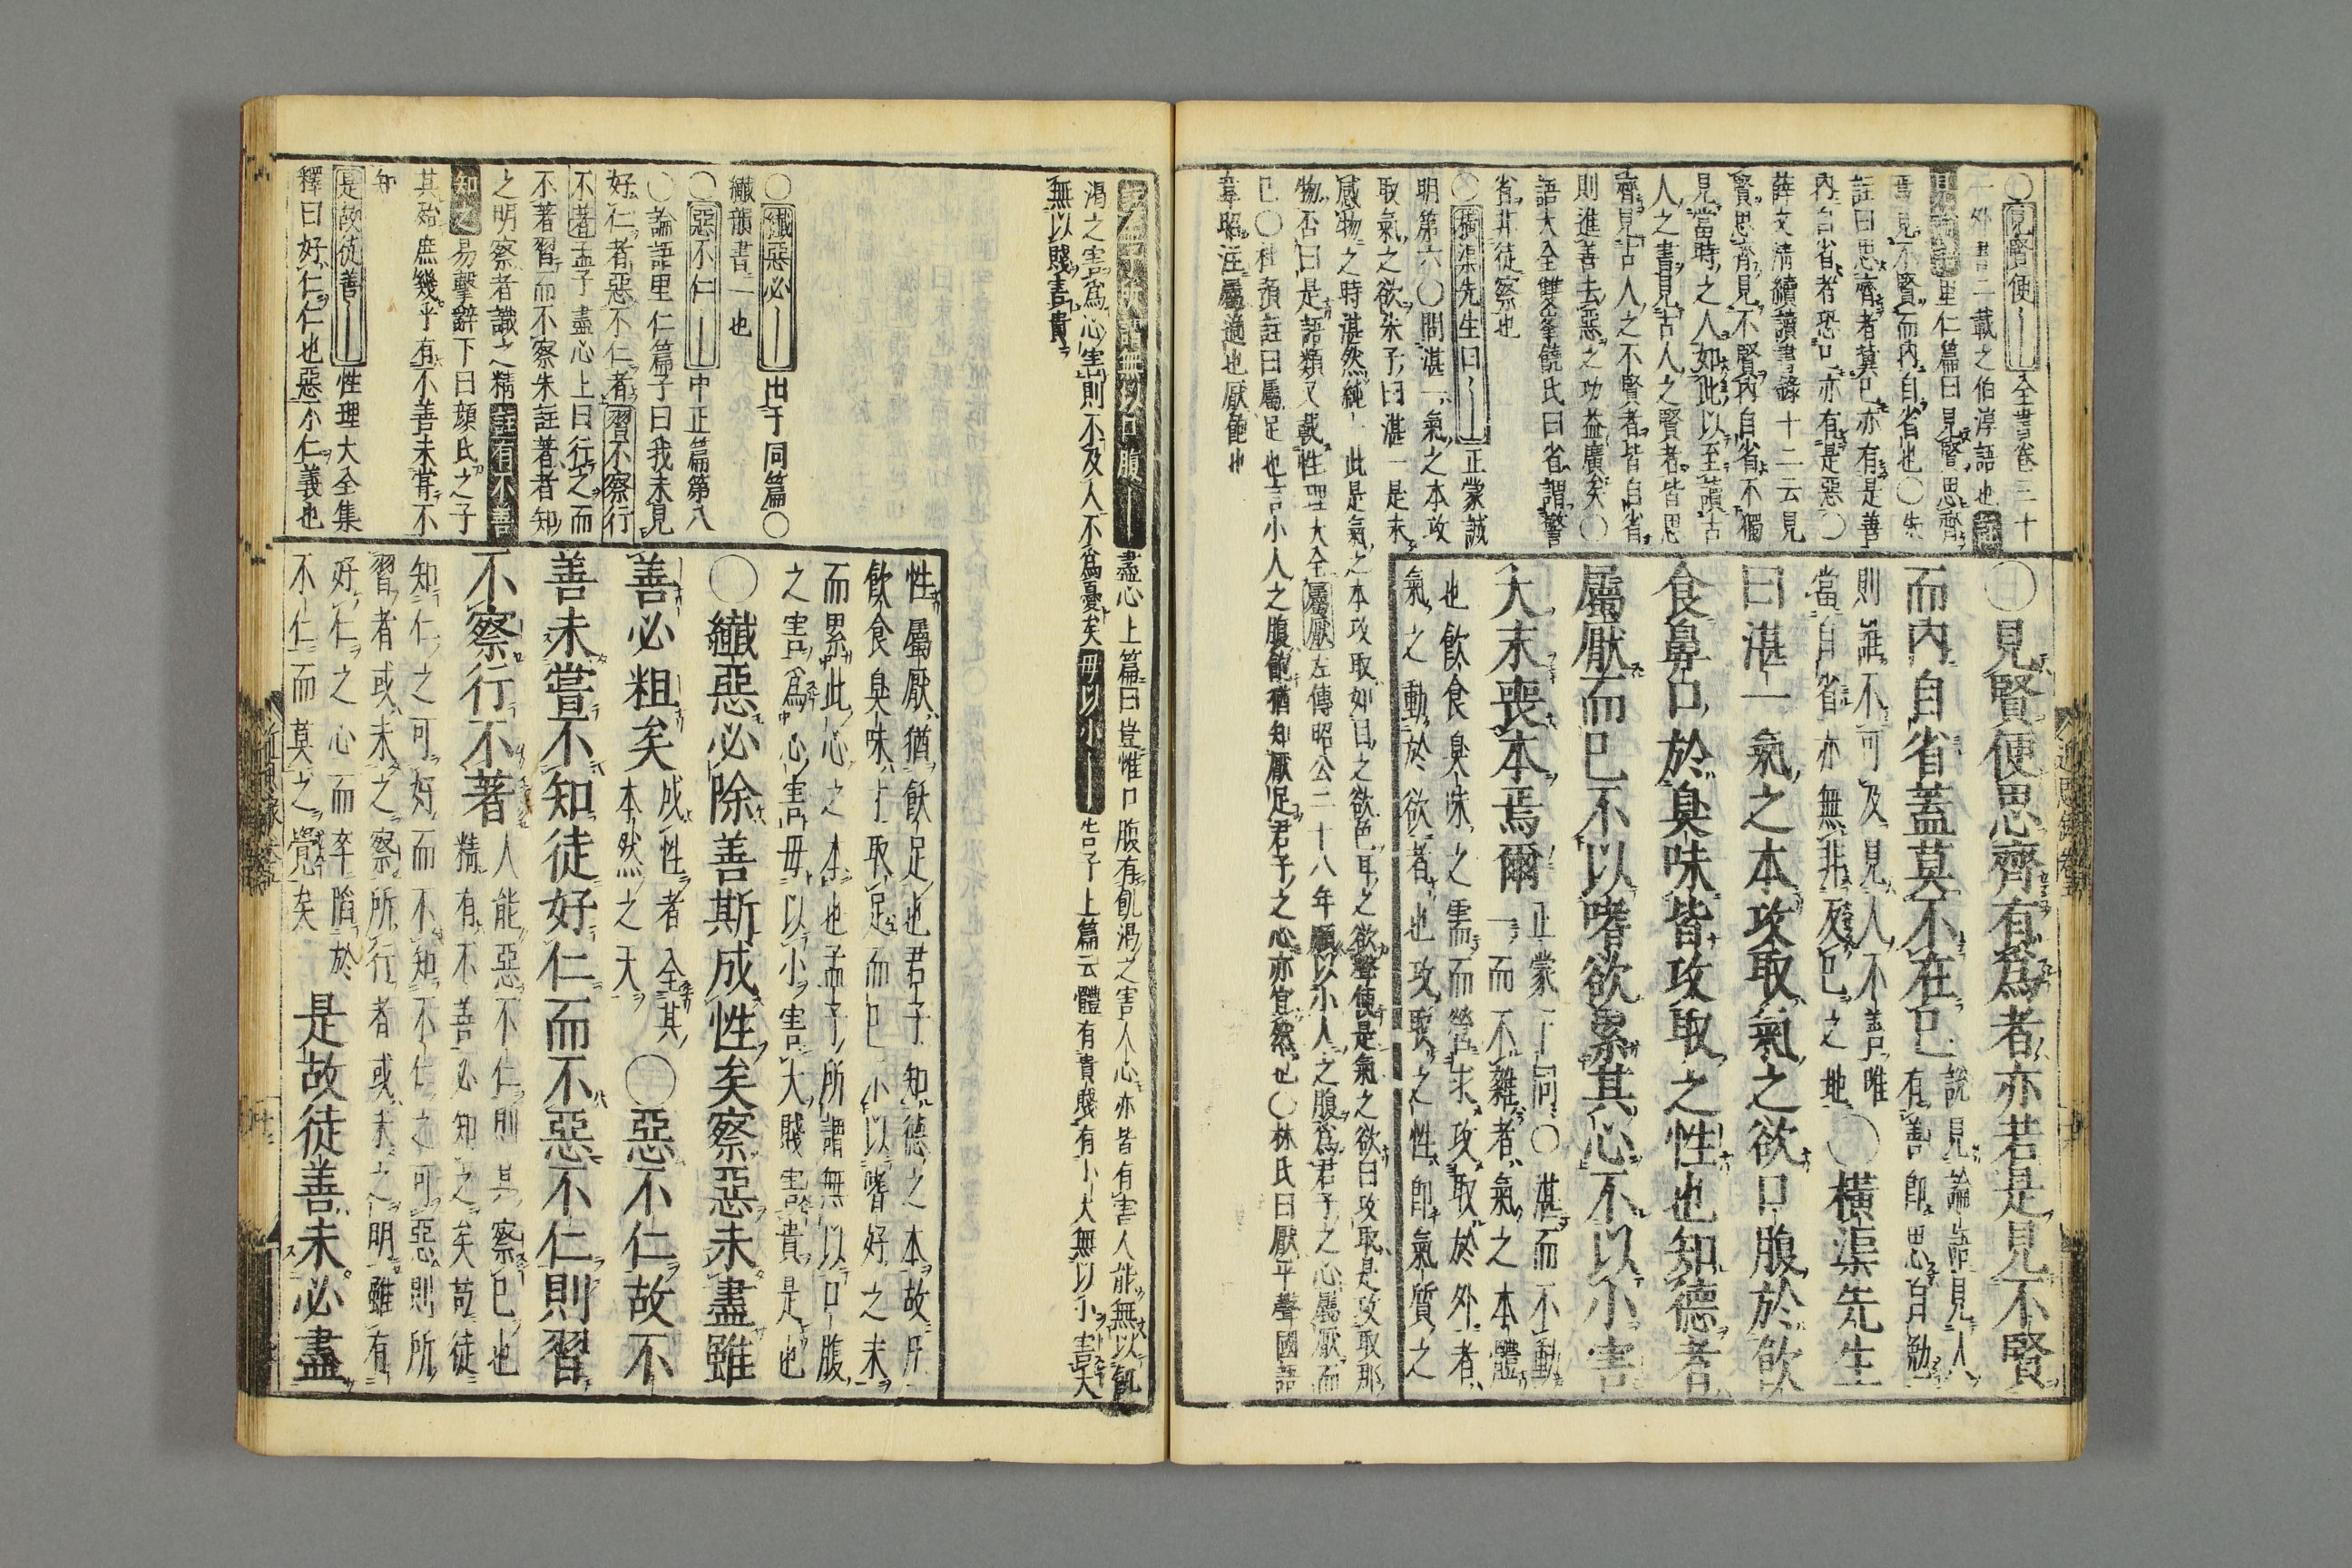 ○見賢便 全書卷三十
一外書二載之伯淳語也 註
見論語 里仁篇曰見賢思齊
焉見不賢而内自省也○朱
註曰思齊者冀己亦有是善
内自省者恐己亦有是惡○
薛文清續讀書錄十二云見
賢思齊見不賢内自省不獨
見當時之人如此以至讀古
人之書見古人之賢者皆思
齊見古人之不賢者皆自省
則進善去惡之功益廣矣○
語大全雙峯饒氏曰省謂警
省非徒察也
○橫渠先生曰 正蒙誠
明第六○問湛一氣之本攻
取氣之欲朱子曰湛一是未
感物之時湛然純一此是氣之本攻取如目之欲色耳之欲聲便是氣之欲曰攻取是攻取那
物否曰是語類又載性理大全 屬厭 左傳昭公二十八年願以小人之腹爲君子之心屬厭而
已○杜預註曰屬足也言小人之腹飽猶知厭足君子之心亦宜然也○林氏曰厭平聲國語
韋昭注屬適也厭飽也
○見賢便思齊有爲者亦若是見不賢
而内自省蓋莫不在己 說見論語見人
有善即思自勉
則誰不可及見人不善唯
當自省亦無非及己之地 ○橫渠先生
曰湛一氣之本攻取氣之欲口腹於飲
食鼻口於臭味皆攻取之性也知德者
屬厭而已不以嗜欲累其心不以小害
大末喪本焉爾 正蒙下同○湛而不動
一而不雜者氣之本體
也飲食臭味之需而營求攻取於外者
氣之動於欲者也攻取之性即氣質之
孟子所謂無以口腹 盡心上篇曰豈惟口腹有飢渴之害人心亦皆有害人能無以飢
渴之害爲心害則不及人不爲憂矣 毋以小 告子上篇云體有貴賤有小大無以小害大
無以賤害貴
○纖惡必 出于同篇○
纖韻書一也
○惡不仁 中正篇第八
○論語里仁篇子曰我未見
好仁者惡不仁者 習不察行
不著 孟子盡心上曰行之而
不著習而不察朱註著者知
之明察者識之精 註有不善
知之 易擊辭下曰顏氏之子
其殆庶幾乎有不善未嘗不
知
是故徒善 性理大全集
釋曰好仁仁也惡不仁義也
性屬厭猶飫足也君子知德之本故所
飲食臭味才取足而已不以嗜好之末
而累此心之本也孟子所謂無以口腹
之害爲心害毋以小害大賤害貴是也
○纖惡必除善斯成性矣察惡未盡雖
善必粗矣 成性者全其
本然之天 ○惡不仁故不
善未嘗不知徒好仁而不惡不仁則習
不察行不著 人能惡不仁則其察己也
精有不善必知之矣苟徒
知仁之可好而不知不仁之可惡則所
習者或未之察所行者或未之明雖有
好仁之心而卒陷於
不仁而莫之覺矣 是故徒善未必盡
近思錄卷五